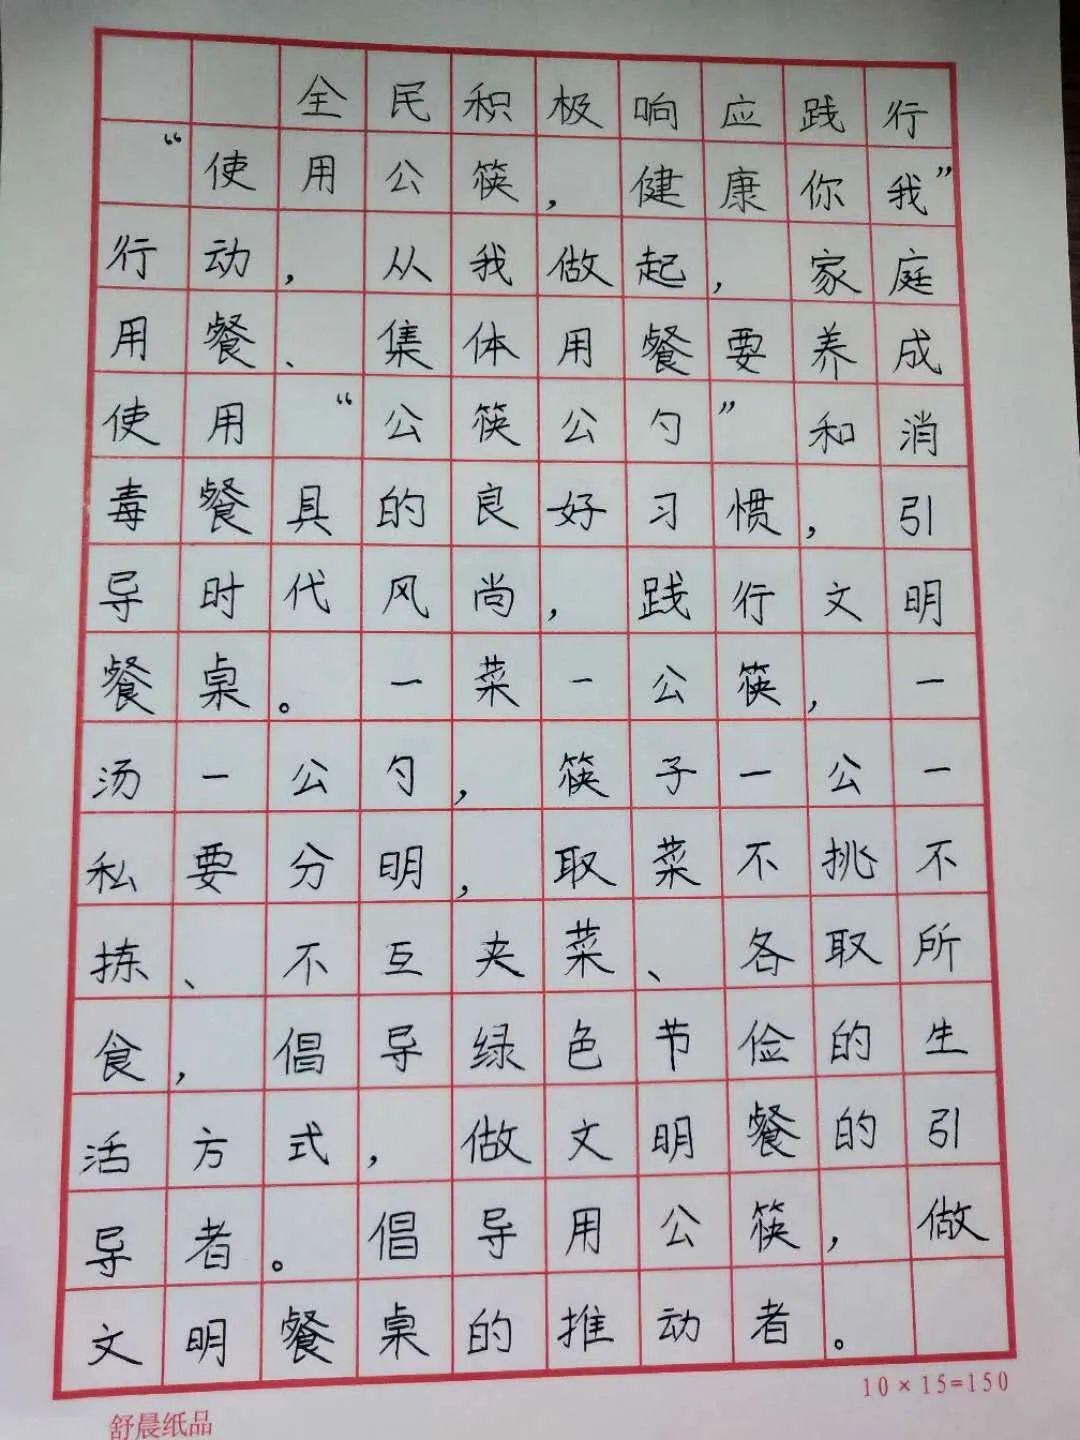 全民积极响应践行
“使用公筷，健康你我”
行动，从我做起，家庭
用餐、集体用餐要养成
使用“公筷公勺”和消
毒餐具的良好习惯，引
导时代风尚，践行文明
餐桌。一菜一公筷，一
汤一公勺，筷子一公一
私要分明，取菜不挑不
拣、不互夹菜、各取所
食，倡导绿色节俭的生
活方式，做文明餐的引
导者。倡导用公筷，做
文明餐桌的推动者。
10×15=150
舒晨纸品